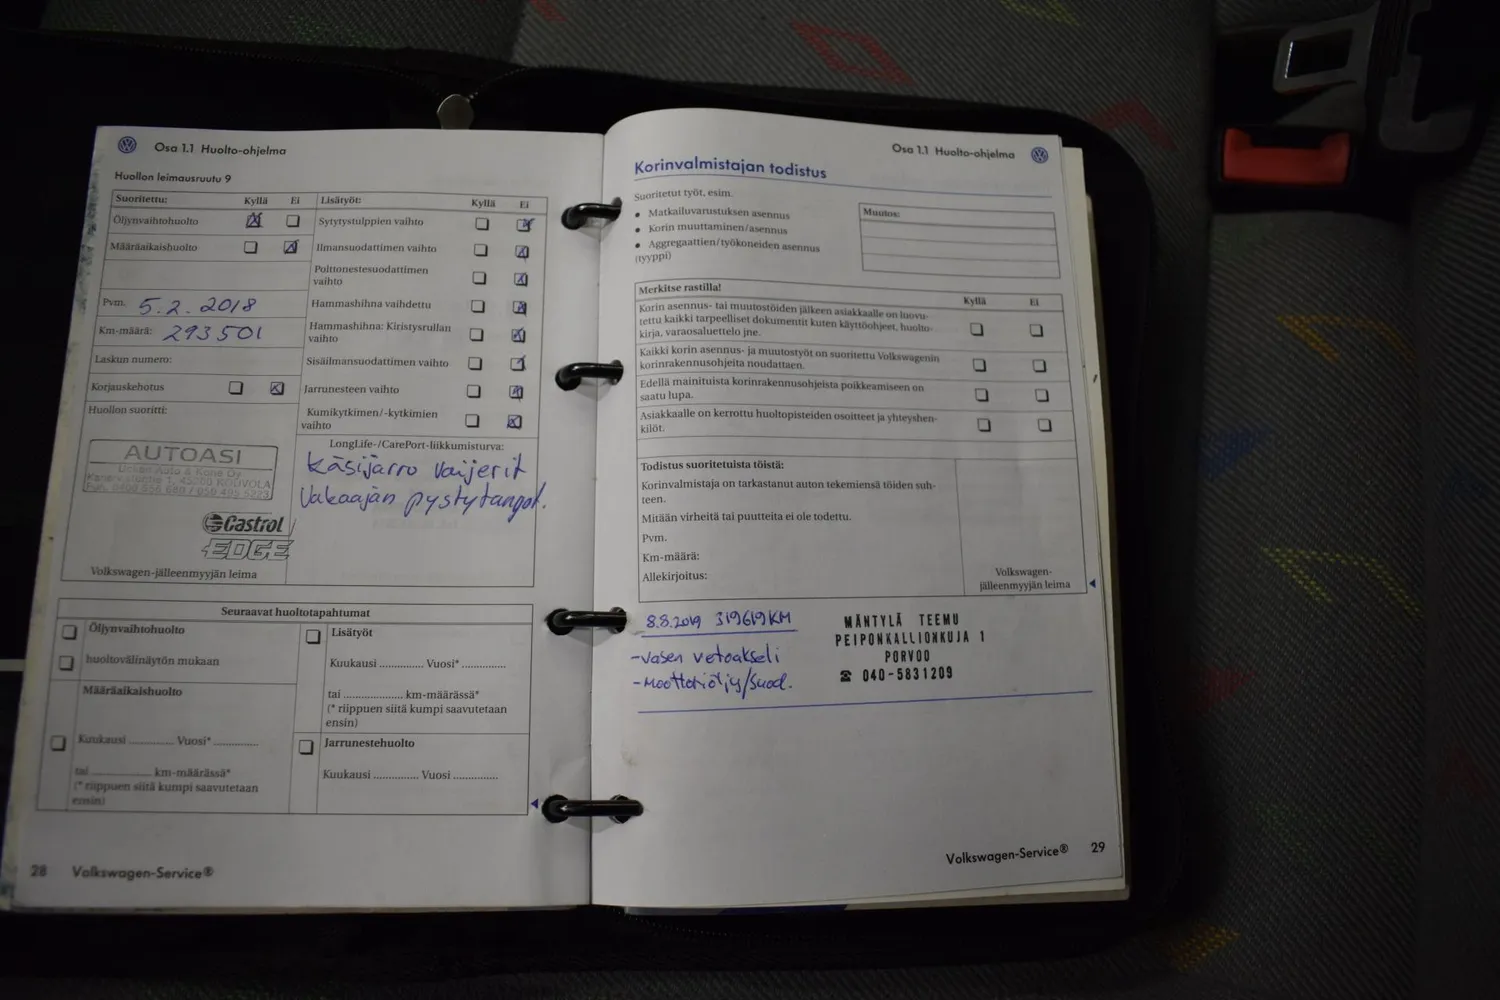 Osa 1.1 Huolto-ohjelma
Huollon leimausruutu 9
Suoritettu: Kyllä Ei
Öljynvaihtohuolto
Määräaikaishuolto
Pvm. 5.2.2018
Km-määrä: 293501
Laskun numero:
Korjauskehotus
Huollon suoritti:
AUTOASI
45200 KOUVOLA
Castrol
EDGE
Volkswagen-jälleenmyyjän leima
Lisätyöt: Kyllä Ei
Sytytystulppien vaihto
Ilmansuodattimen vaihto
Polttonestesuodattimen
vaihto
Hammashihna vaihdettu
Hammashihna: Kiristysrullan
vaihto
Sisäilmansuodattimen vaihto
Jarrunesteen vaihto
Kumikytkimen/-kytkimien
vaihto
LongLife-/CarePort-liikkumisturva:
Käsijarro vaijerit
Vakaajan pystytangot.
Seuraavat huoltotapahtumat
Öljynvaihtohuolto
huoltovälinäytön mukaan
Määräaikaishuolto
Kuukausi ............. Vuosi* .............
tai .................. km-määrässä*
(* riippuen siitä kumpi saavutetaan
ensin)
Lisätyöt
Kuukausi ............. Vuosi* .............
tai .................. km-määrässä*
(* riippuen siitä kumpi saavutetaan
ensin)
Jarrunestehuolto
Kuukausi ............. Vuosi .............
28 Volkswagen-Service®
Osa 1.1 Huolto-ohjelma
Korinvalmistajan todistus
Suoritetut työt, esim.
• Matkailuvarustuksen asennus
• Korin muuttaminen/asennus
• Aggregaattien/työkoneiden asennus
(tyyppi)
Muutos:
Merkitse rastilla! Kyllä Ei
Korin asennus- tai muutostöiden jälkeen asiakkaalle on luovu-
tettu kaikki tarpeelliset dokumentit kuten käyttöohjeet, huolto-
kirja, varaosaluettelo jne.
Kaikki korin asennus- ja muutostyöt on suoritettu Volkswagenin
korinrakennusohjeita noudattaen.
Edellä mainituista korinrakennusohjeista poikkeamiseen on
saatu lupa.
Asiakkaalle on kerrottu huoltopisteiden osoitteet ja yhteyshen-
kilöt.
Todistus suoritetuista töistä:
Korinvalmistaja on tarkastanut auton tekemiensä töiden suh-
teen.
Mitään virheitä tai puutteita ei ole todettu.
Pvm.
Km-määrä:
Allekirjoitus:
Volkswagen-
jälleenmyyjän leima
8.8.2019 319619KM
-Vasen vetoakseli
-Moottoriöljy/suod.
MÄNTYLÄ TEEMU
PEIPONKALLIONKUJA 1
PORVOO
☎ 040-5831209
Volkswagen-Service® 29